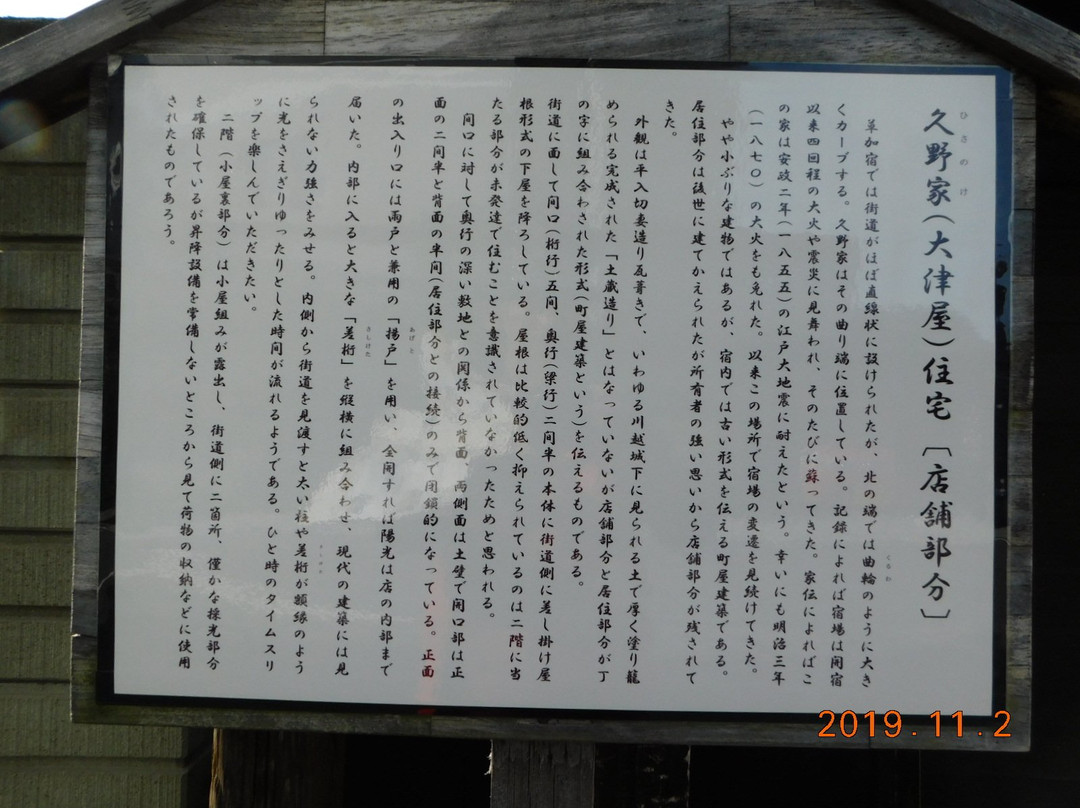 久野家(大津屋)住宅〔店舗部分〕
ひさのけ
草加宿では街道がほぼ直線状に設けられたが、北の端では曲輪のように大き
くるわ
くカーブする。久野家はその曲り端に位置している。記録によれば宿場は開宿
以来四回程の大火や震災に見舞われ、そのたびに蘇ってきた。家伝によればこ
の家は安政二年(一八五五)の江戸大地震に耐えたという。幸いにも明治三年
(一八七〇)の大火をも免れた。以来この場所で宿場の変遷を見続けてきた。
やや小ぶりな建物ではあるが、宿内では古い形式を伝える町屋建築である。
居住部分は後世に建てかえられたが所有者の強い思いから店舗部分が残されて
きた。
外観は平入切妻造り瓦葺きで、いわゆる川越城下に見られる土で厚く塗り籠
められる完成された「土蔵造り」とはなっていないが店舗部分と居住部分が丁
の字に組み合わされた形式(町屋建築という)を伝えるものである。
街道に面して間口(桁行)五間、奥行(梁行)二間半の本体に街道側に差し掛け屋
根形式の下屋を降ろしている。屋根は比較的低く抑えられているのは二階に当
たる部分が未発達で住むことを意識されていなかったためと思われる。
間口に対して奥行の深い敷地との関係から背面、両側面は土壁で開口部は正
面の二間半と背面の半間(居住部分との接続)のみで閉鎖的になっている。正面
の出入り口には雨戸と兼用の「揚戸」を用い、全開すれば陽光は店の内部まで
あげと
届いた。内部に入ると大きな「差桁」を縦横に組み合わせ、現代の建築には見
さしけた
られない力強さをみせる。内側から街道を見渡すと太い柱や差桁が額縁のよう
に光をさえぎりゆったりとした時間が流れるようである。ひと時のタイムスリ
ップを楽しんでいただきたい。
二階(小屋裏部分)は小屋組みが露出し、街道側に二箇所、僅かな採光部分
を確保しているが昇降設備を常備しないところから見て荷物の収納などに使用
されたものであろう。
2019.11.2